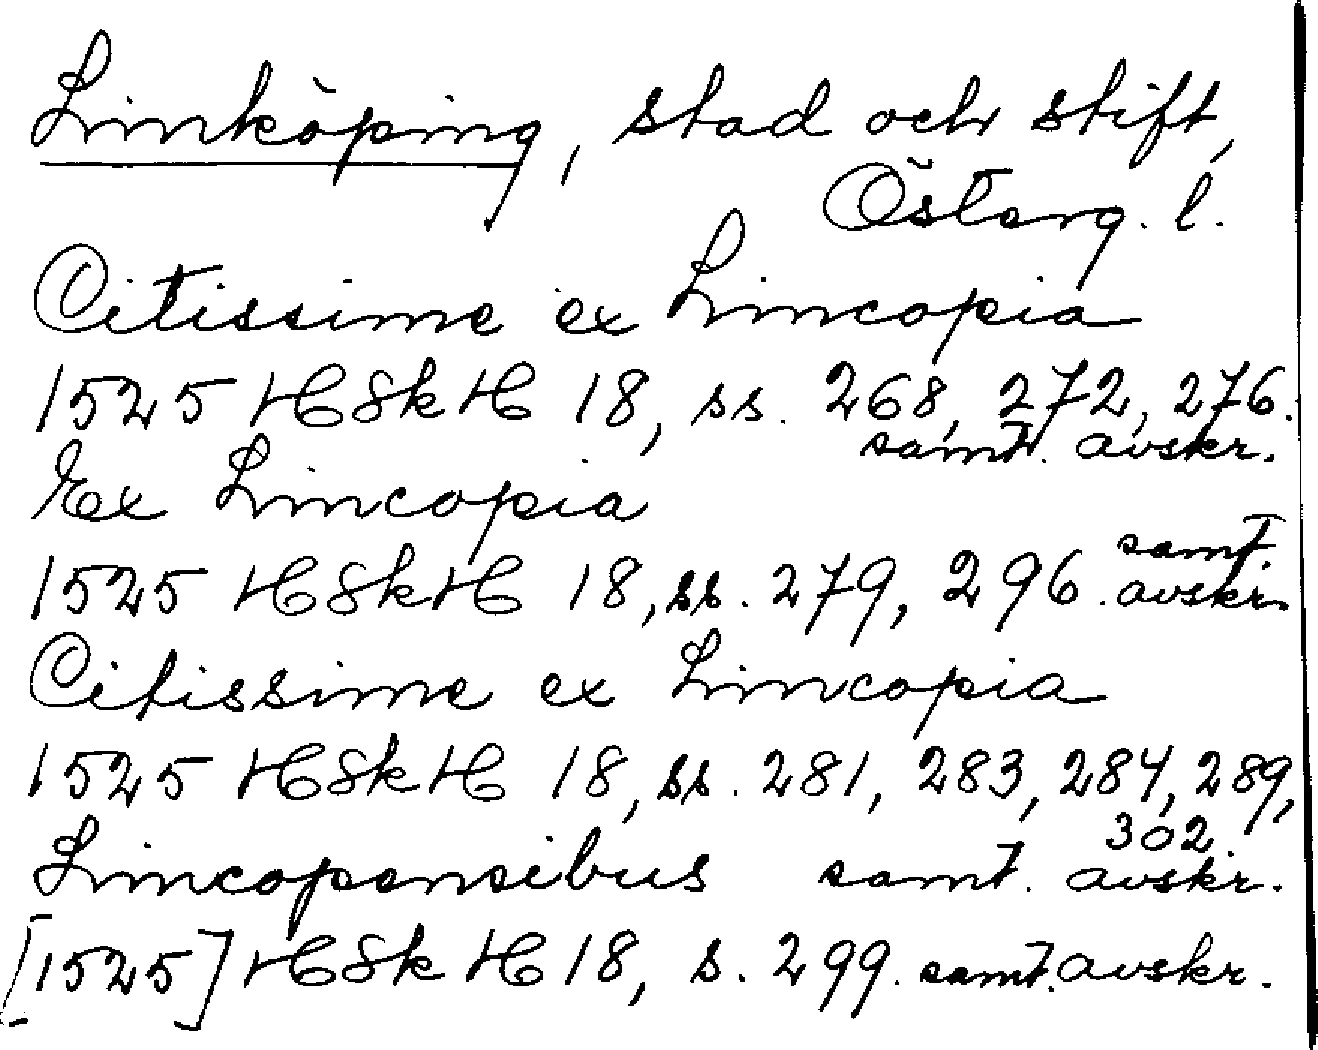 Linköping, stad och stift,
Österg. l.
Citissime ex Lincopia
1525 HSkH 18, ss. 268, 272, 276.
samt. avskr.
Ex Lincopia
1525 HSkH 18, ss. 279, 296. samt. avskr.
Citissime ex Lincopia
1525 HSkH 18, ss. 281, 283, 284, 289,
302.
Lincopensibus samt. avskr.
[1525] HSkH 18, s. 299. samt. avskr.